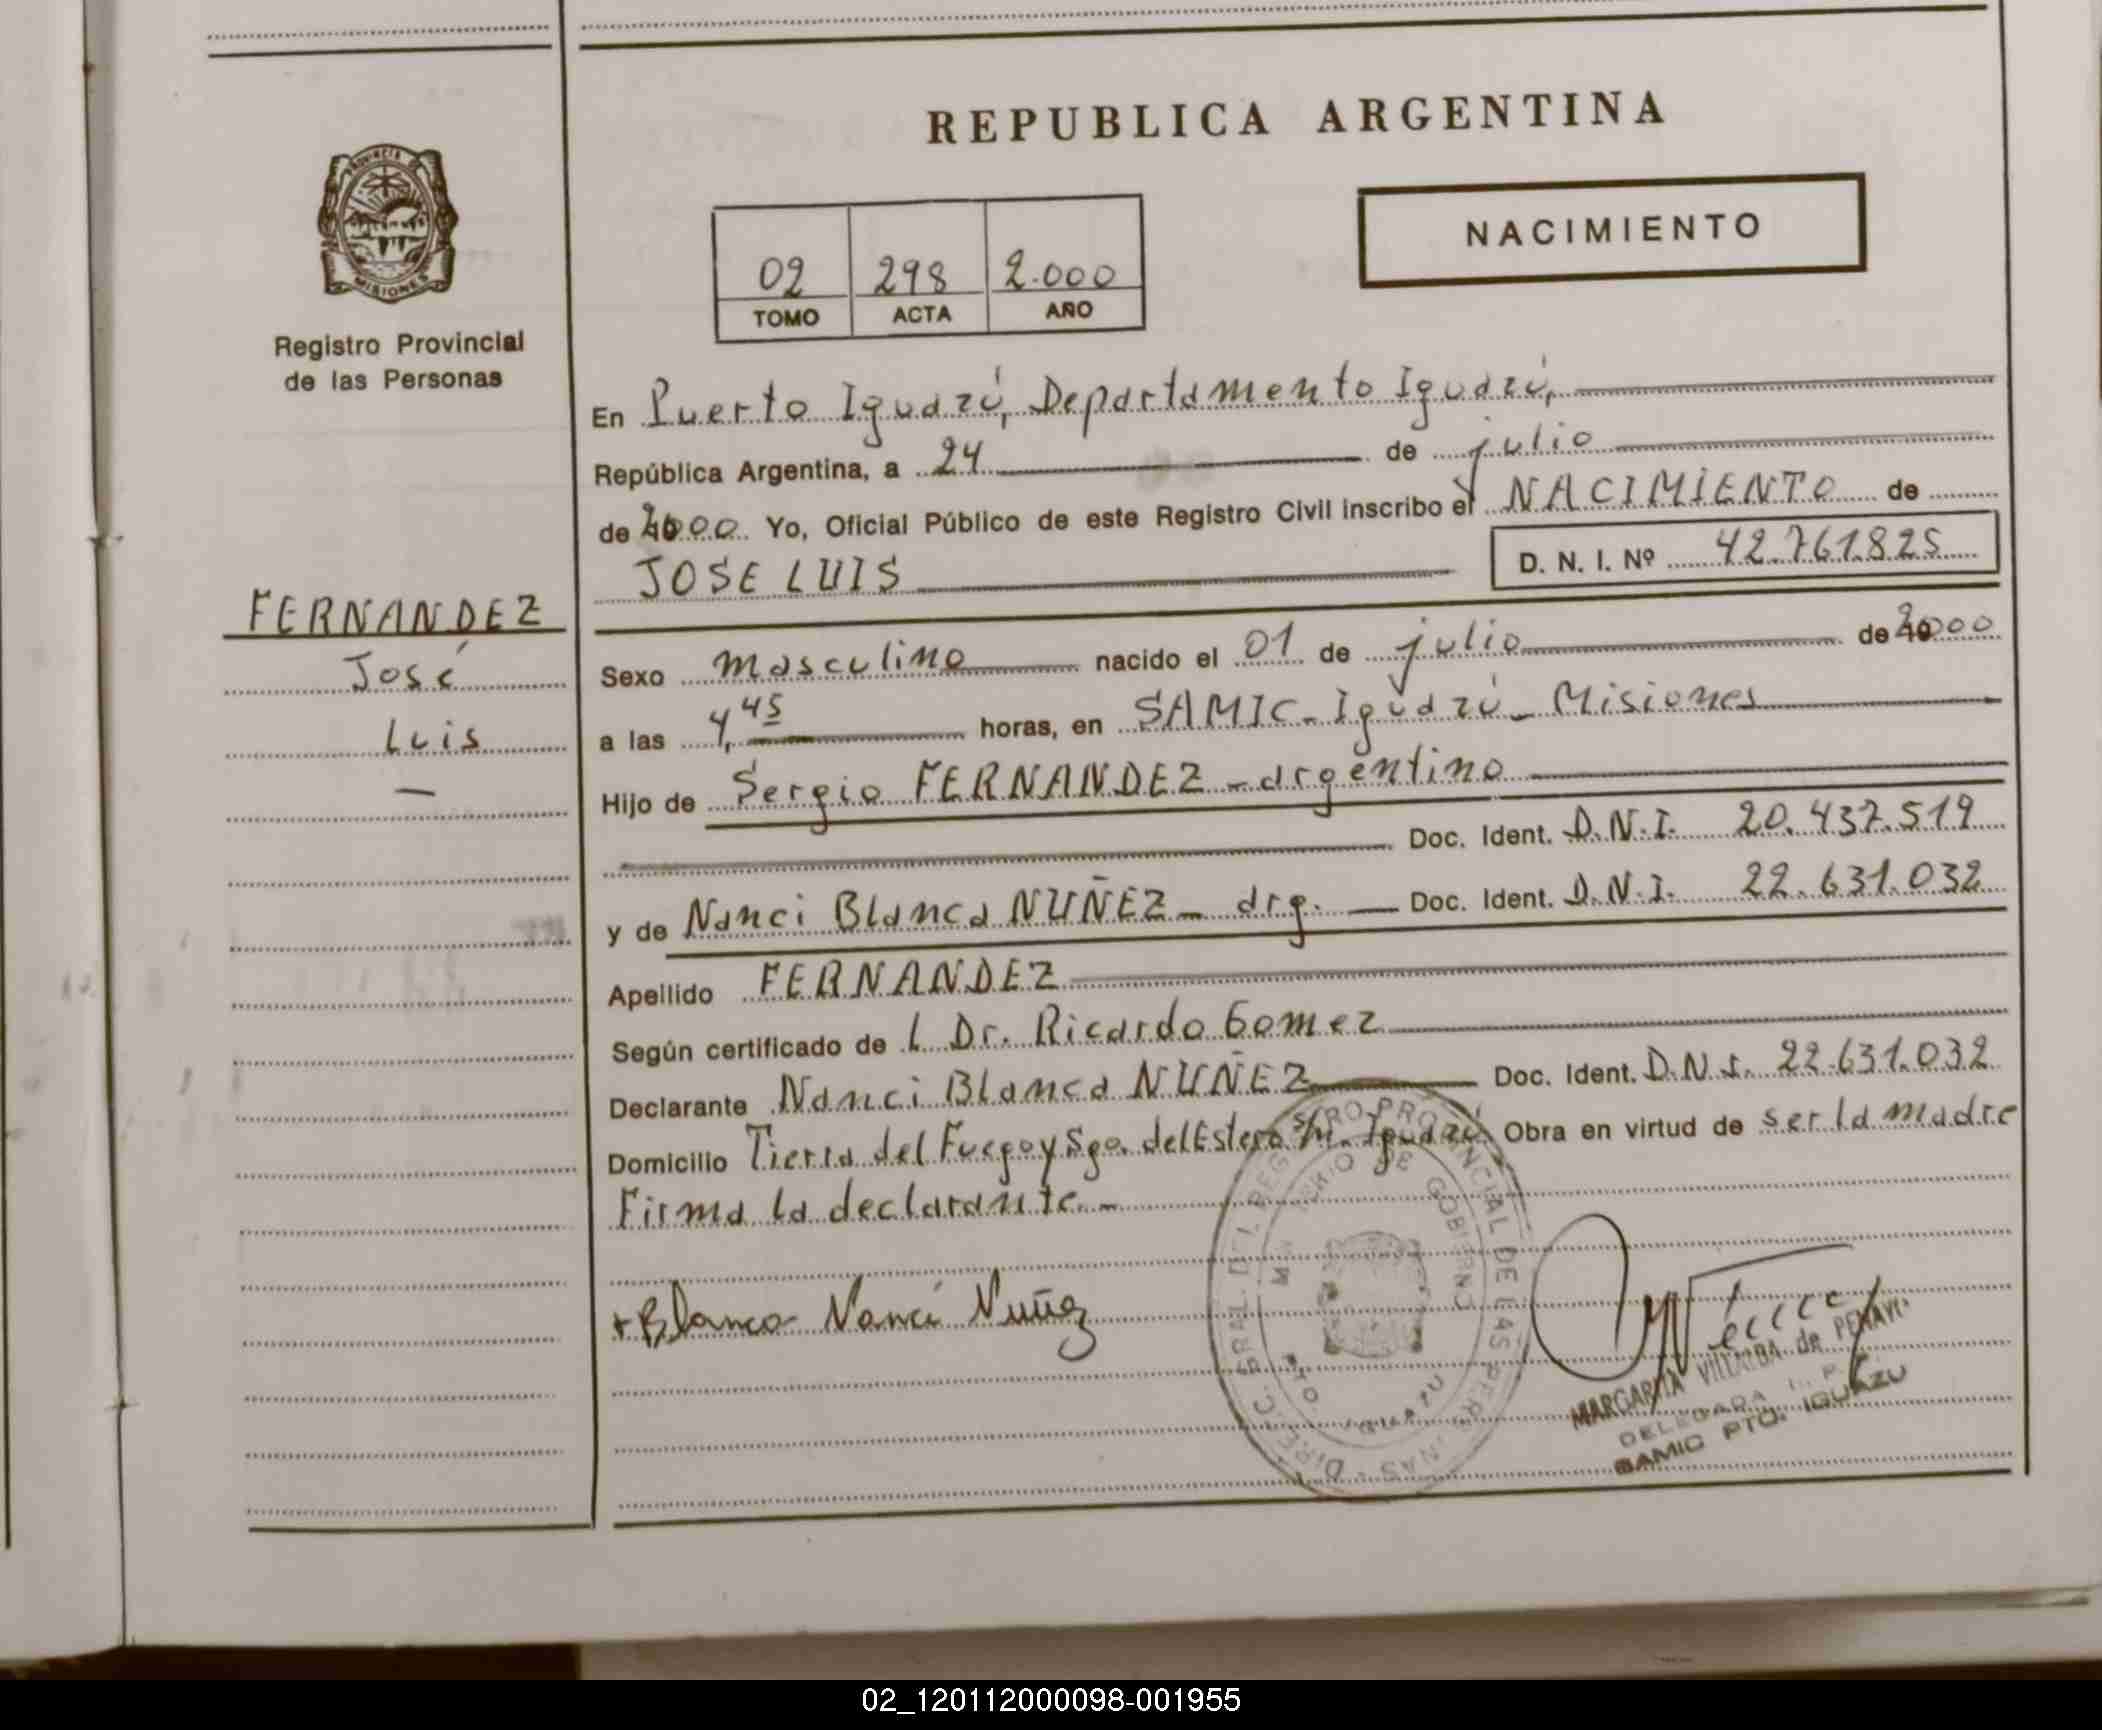 REPUBLICA ARGENTINA
PROVINCIA DE
MISIONES
Registro Provincial
de las Personas
02 298 2.000
TOMO ACTA AÑO
NACIMIENTO
En Puerto Iguazú, Departamento Iguazú,
República Argentina, a 24 de julio
de 2000 Yo, Oficial Público de este Registro Civil inscribo el NACIMIENTO de
JOSE LUIS D. N. I. Nº 42.761.825
FERNANDEZ
José
Luis
Sexo masculino nacido el 01 de julio de 2000
a las 4,45 horas, en SAMIC - Iguazú - Misiones
Hijo de Sergio FERNANDEZ - argentino
Doc. Ident. D.N.I. 20.437.519
y de Nanci Blanca NUÑEZ - arg. Doc. Ident. D.N.I. 22.631.032
Apellido FERNANDEZ
Según certificado de L Dr. Ricardo Gomez
Declarante Nanci Blanca NUÑEZ Doc. Ident. D.N.I. 22.631.032
Domicilio Tierra del Fuego y Sgo. del Estero s/n. Iguazú Obra en virtud de ser la madre
Firma la declarante.-
Blanca Nanci Nuñez
DIREC. GRAL. DEL REGISTRO PROVINCIAL DE LAS PERSONAS
DE GOBIERNO
MARGARITA VILLALBA de
DELEGADA
SAMIC PTO. IGUAZU
02_120112000098-001955